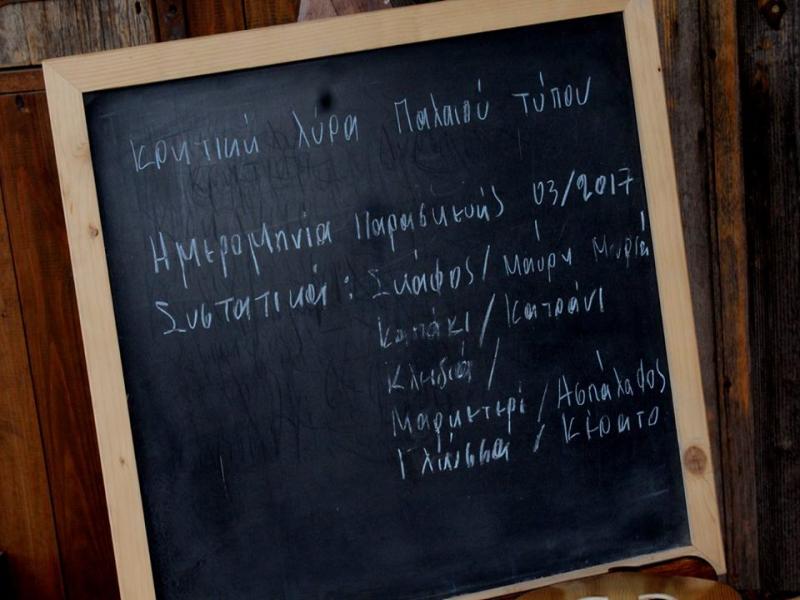 Κρητική λύρα Παλαιού τύπου
Ημερομηνία Παρασκευής 03/2017
Συστατικά: Σκάφος/Μαύρη Μυρτιά
Καπάκι/Κατράνι
Κλειδιά/
Μαρκετερί/Ασπάλαθος
Γλώσσα/Κέρατο